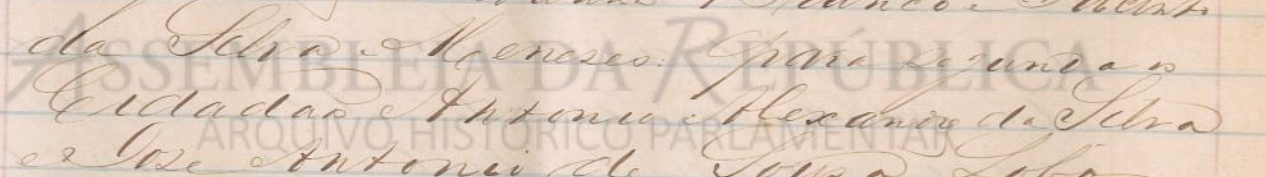 da Silva Meneses. para segunda os
Cidadaõs Antonio Alexandre da Silva
e Jose Antonio de Sousa Lobo
ASSEMBLEIA DA REPÚBLICA
ARQUIVO HISTÓRICO PARLAMENTAR